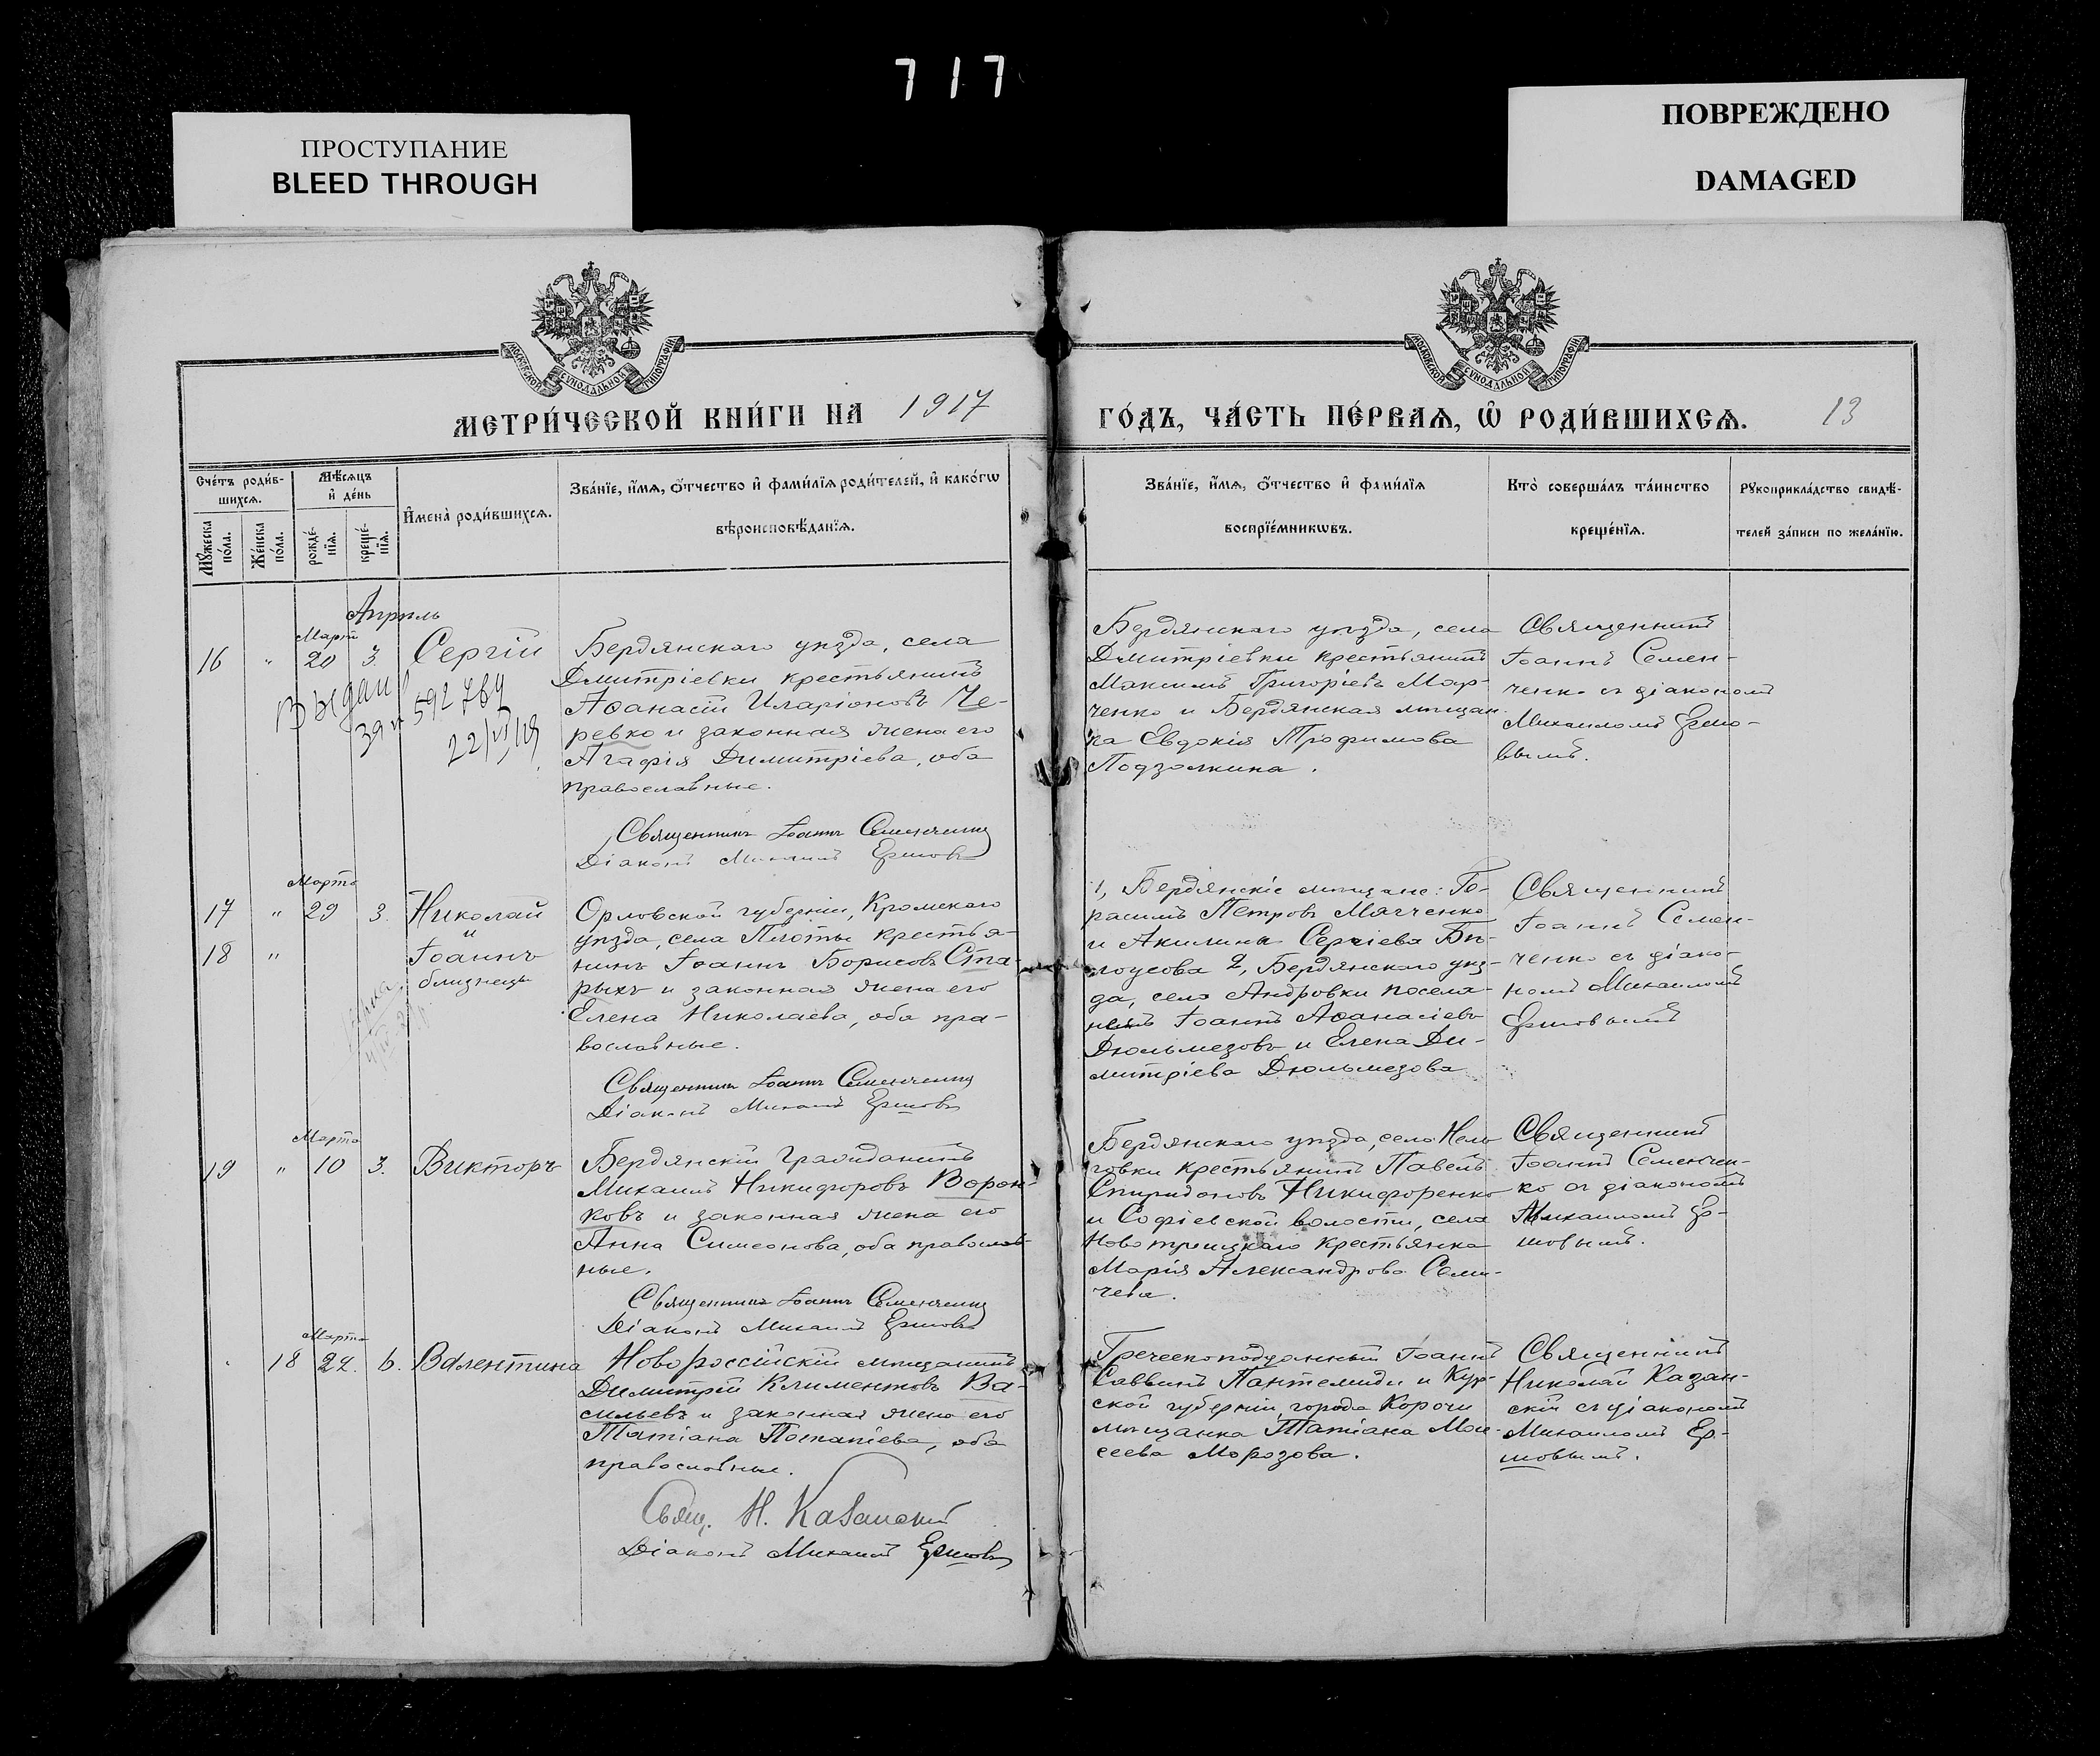 717
ПРОСТУПАНИЕ
BLEED THROUGH
ПОВРЕЖДЕНО
DAMAGED
МОСКОВСКОЙ СѴНОДАЛЬНОЙ ТИПОГРАФІИ
МОСКОВСКОЙ СѴНОДАЛЬНОЙ ТИПОГРАФІИ
МЕТРИ́ЧЕСКОЙ КНИ́ГИ НА 1917
ГО́ДЪ, ЧА́СТЬ ПЕ́РВАѦ, Ѽ РОДИ́ВШИХСѦ. 13
Сче́тъ роди́в-
шихсѧ.
Мѣ́сѧцъ
и҆ де́нь
Мꙋ́жеска по́ла.
Же́нска по́ла.
рожде́-нїѧ.
креще́-нїѧ.
И҆мена̀ роди́вшихсѧ.
Зва́нїе, и҆́мѧ, ѻ҆́тчество и҆ фами́лїѧ роди́телей, и҆ како́гѡ
вѣроисповѣ́данїѧ.
Зва́нїе, и҆́мѧ, ѻ҆́тчество и҆ фами́лїѧ
воспрїе́мникѡвъ.
Кто̀ соверша́лъ та́инство
креще́нїѧ.
Рꙋкоприкла́дство свидѣ́-
телей за́писи по жела́нїю.
Апрѣль
Март
16 " 20 3. Сергій
Выдан
592784
Бердянскаго уѣзда, села
Димитріевки крестьянинъ
Аѳанасій Иларіоновъ Че-
ревко и законная жена его
Агафія Димитріева, оба
православные.
Священникъ Іоаннъ Семенченко
Діаконъ Михаилъ Ершовъ
Бердянскаго уѣзда, села
Димитріевки крестьянинъ
Максимъ Григорьевъ Мар-
ченко и Бердянская мѣщан-
ка Евдокія Трофимова
Подзолкина.
Священникъ
Іоаннъ Семен-
ченко съ діакономъ
Михаиломъ Ершо-
вымъ.
Марта
17 " 29 3. Николай
и
18 " Іоаннъ
близнецы
Орловской губерніи, Кромскаго
уѣзда, села Плоты крестья-
нинъ Іоаннъ Борисовъ Ста-
рыхъ и законная жена его
Елена Николаева, оба пра-
вославные.
Священникъ Іоаннъ Семенченко
Діаконъ Михаилъ Ершовъ
1, Бердянскіе мѣщане: Ге-
расимъ Петровъ Мягченко
и Акилина Сергіева Бѣ-
лоусова 2, Бердянскаго уѣз-
да, села Андровки поселя-
нинъ Іоаннъ Аѳанасіевъ
Дюльмезовъ и Елена Ди-
митріева Дюльмезова
Священникъ
Іоаннъ Семен-
ченко съ діако-
номъ Михаиломъ
Ершовымъ
Марта
19 " 10 3. Викторъ
Бердянскій гражданинъ
Михаилъ Никифоровъ Ворон-
ковъ и законная жена его
Анна Симеонова, оба православ-
ные.
Священникъ Іоаннъ Семенченко
Діаконъ Михаилъ Ершовъ
Бердянскаго уѣзда, села Нель-
говки крестьянинъ Павелъ
Спиридоновъ Никифоренко
и Софіевской волости, села
Новотроицкаго крестьянка
Марія Александрова Семи-
чева.
Священникъ
Іоаннъ Семенчен-
ко съ діакономъ
Михаиломъ Ер-
шовымъ.
Марта
18 22. 6. Валентина
Новороссійскій мѣщанинъ
Димитрій Климентовъ Ва-
сильевъ и законная жена его
Татіана Потапіева, оба
православные.
Свящ. Н. Казанскій
Діаконъ Михаилъ Ершовъ
Греческоподданный Іоаннъ
Саввинъ Пантемиди и Кур-
ской губерніи, города Корочи
мѣщанка Татіана Мои-
сеева Морозова.
Священникъ
Николай Казан-
скій съ діакономъ
Михаиломъ Ер-
шовымъ.